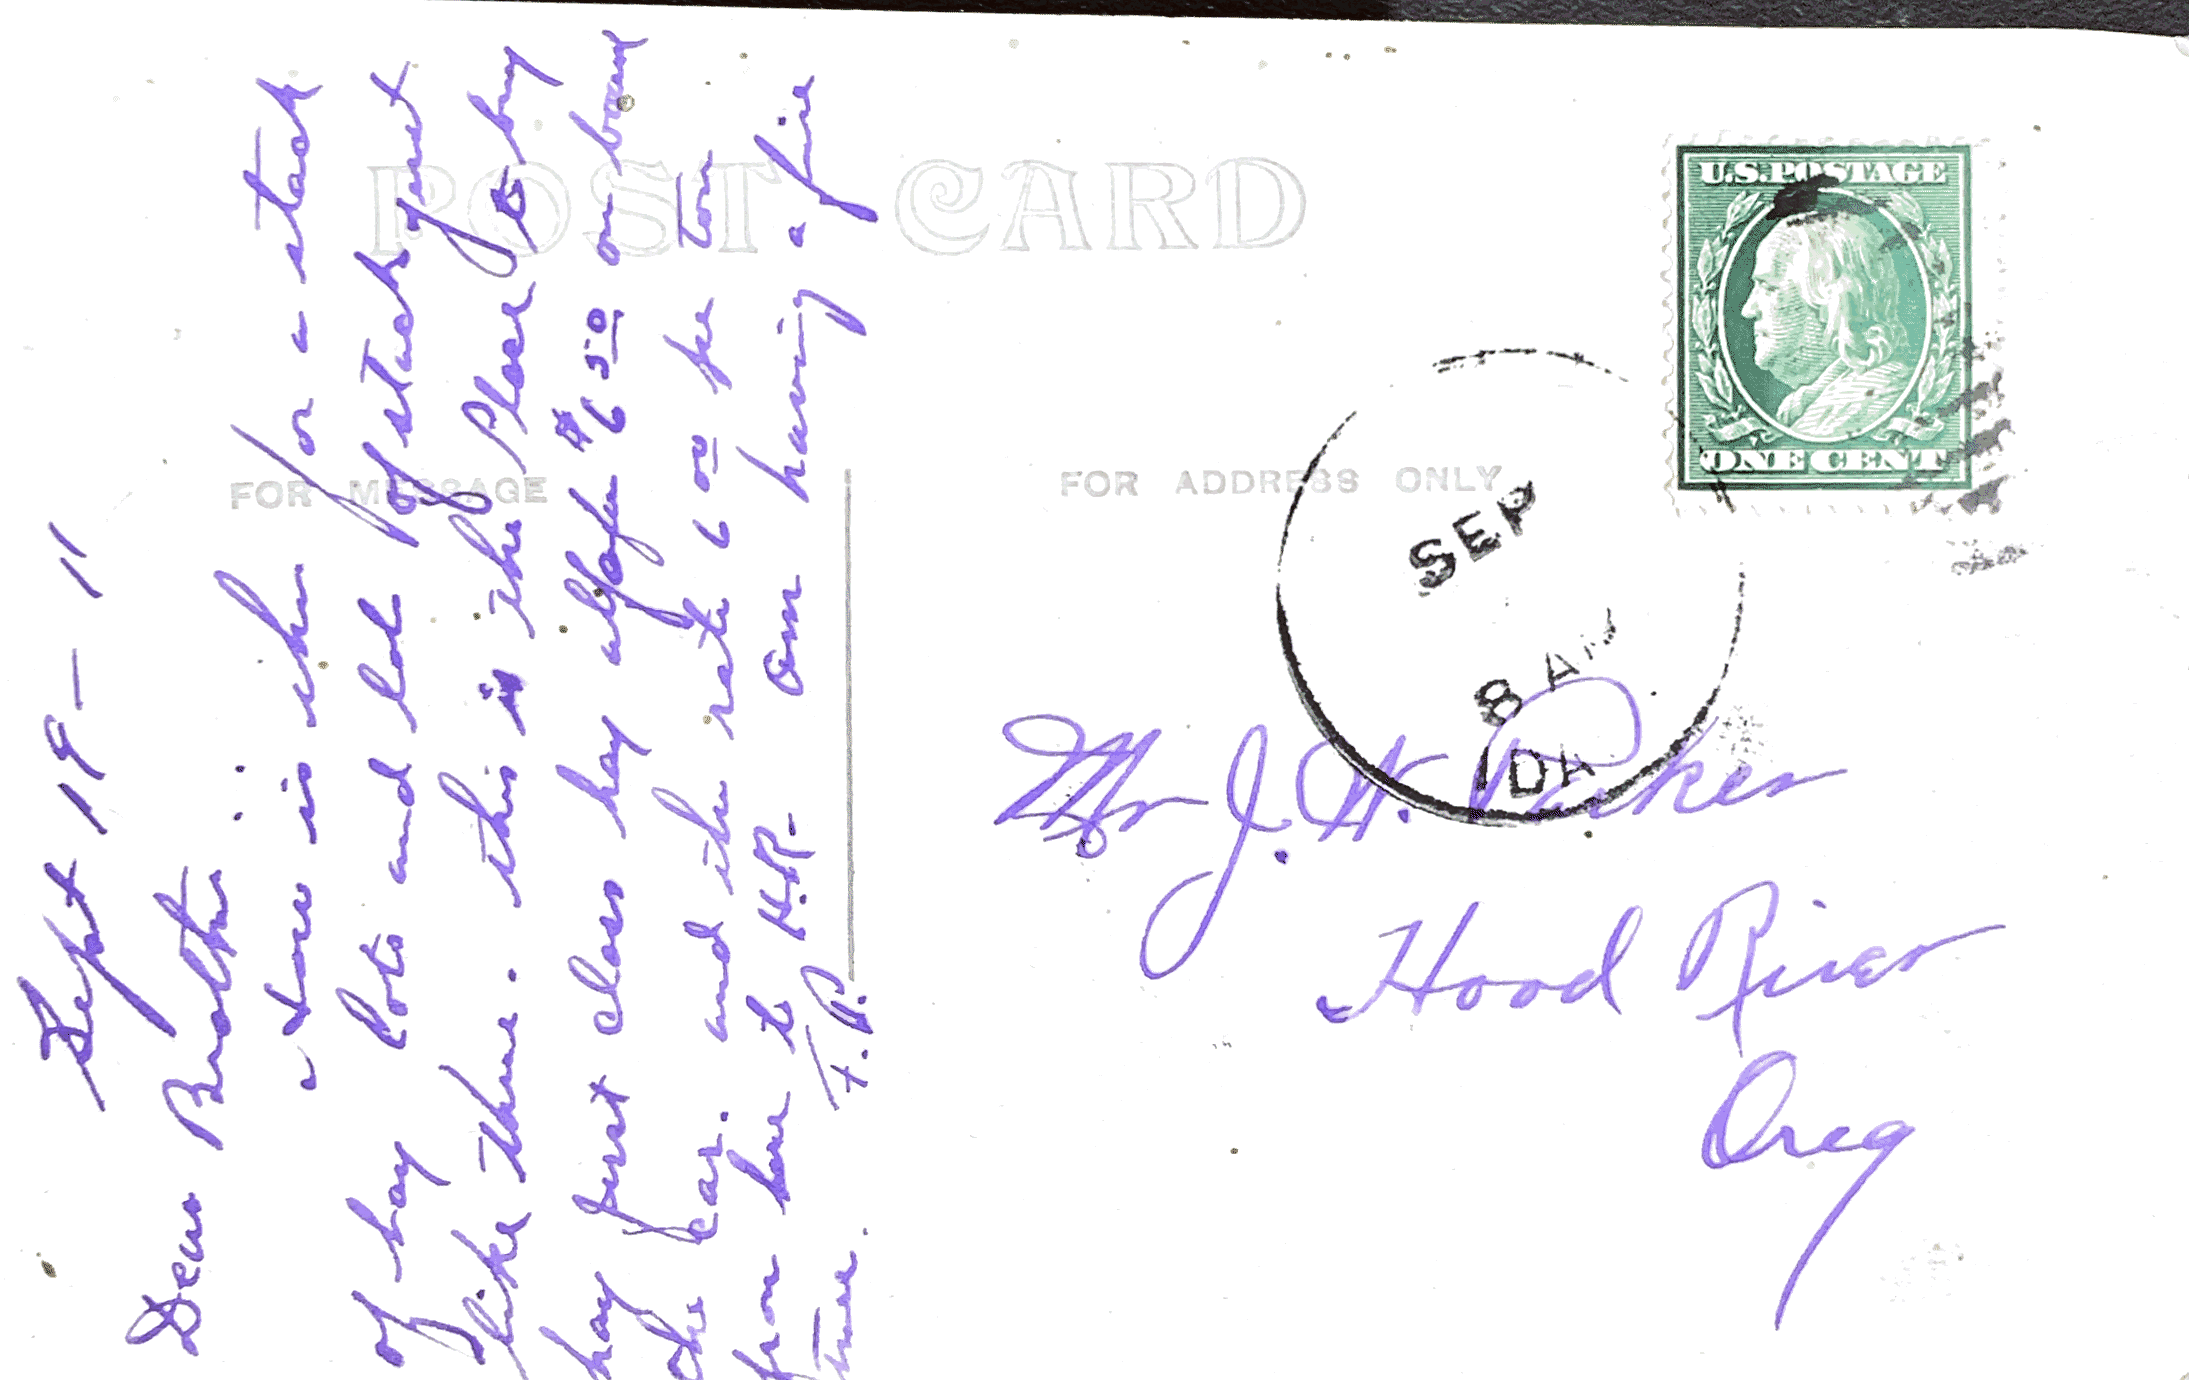 POST CARD
FOR MESSAGE
FOR ADDRESS ONLY
U.S. POSTAGE
ONE CENT
SEP
8 AM
IDA
Mr J. W. Parker
Hood River
Oreg
Sept 19 - 11
Dear Brother:
How is this for a stack
of hay lots and lots of stack just
like these. this is the place to buy
hay first class hay alfalfa $6 50 on board
the car. and the rate 6 00 per ton
from here to H.R- am having a fine
time. F.P.